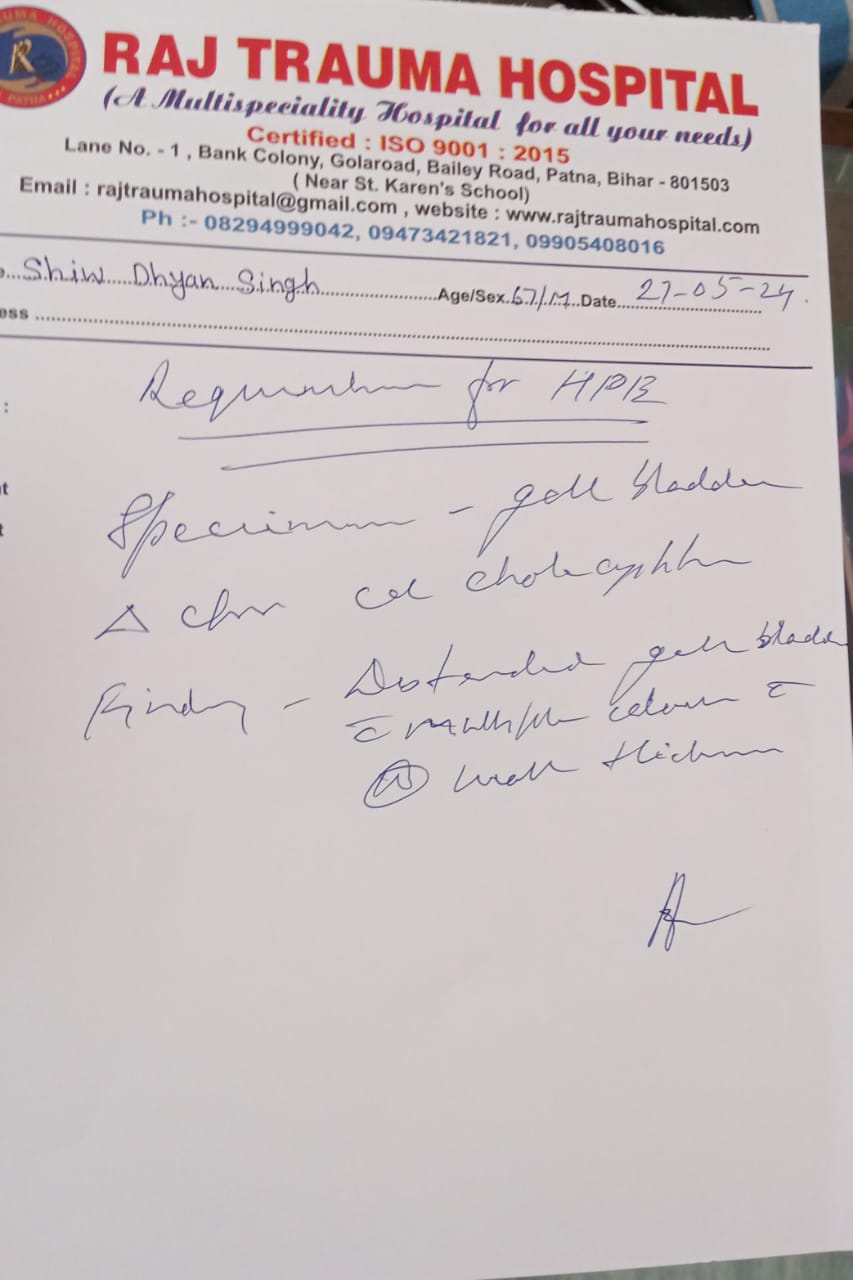 RAUMA HOSPITAL
R
PATNA
RAJ TRAUMA HOSPITAL
(A Multispeciality Hospital for all your needs)
Certified : ISO 9001 : 2015
Lane No. - 1 , Bank Colony, Golaroad, Bailey Road, Patna, Bihar - 801503
( Near St. Karen's School)
Email : rajtraumahospital@gmail.com , website : www.rajtraumahospital.com
Ph :- 08294999042, 09473421821, 09905408016
Shiw Dhyan Singh Age/Sex 67/M Date 27-05-24
ess
:
for HPE
t
Specimen - gall bladder
t
Δ
Finding - Distended gall bladder
wall